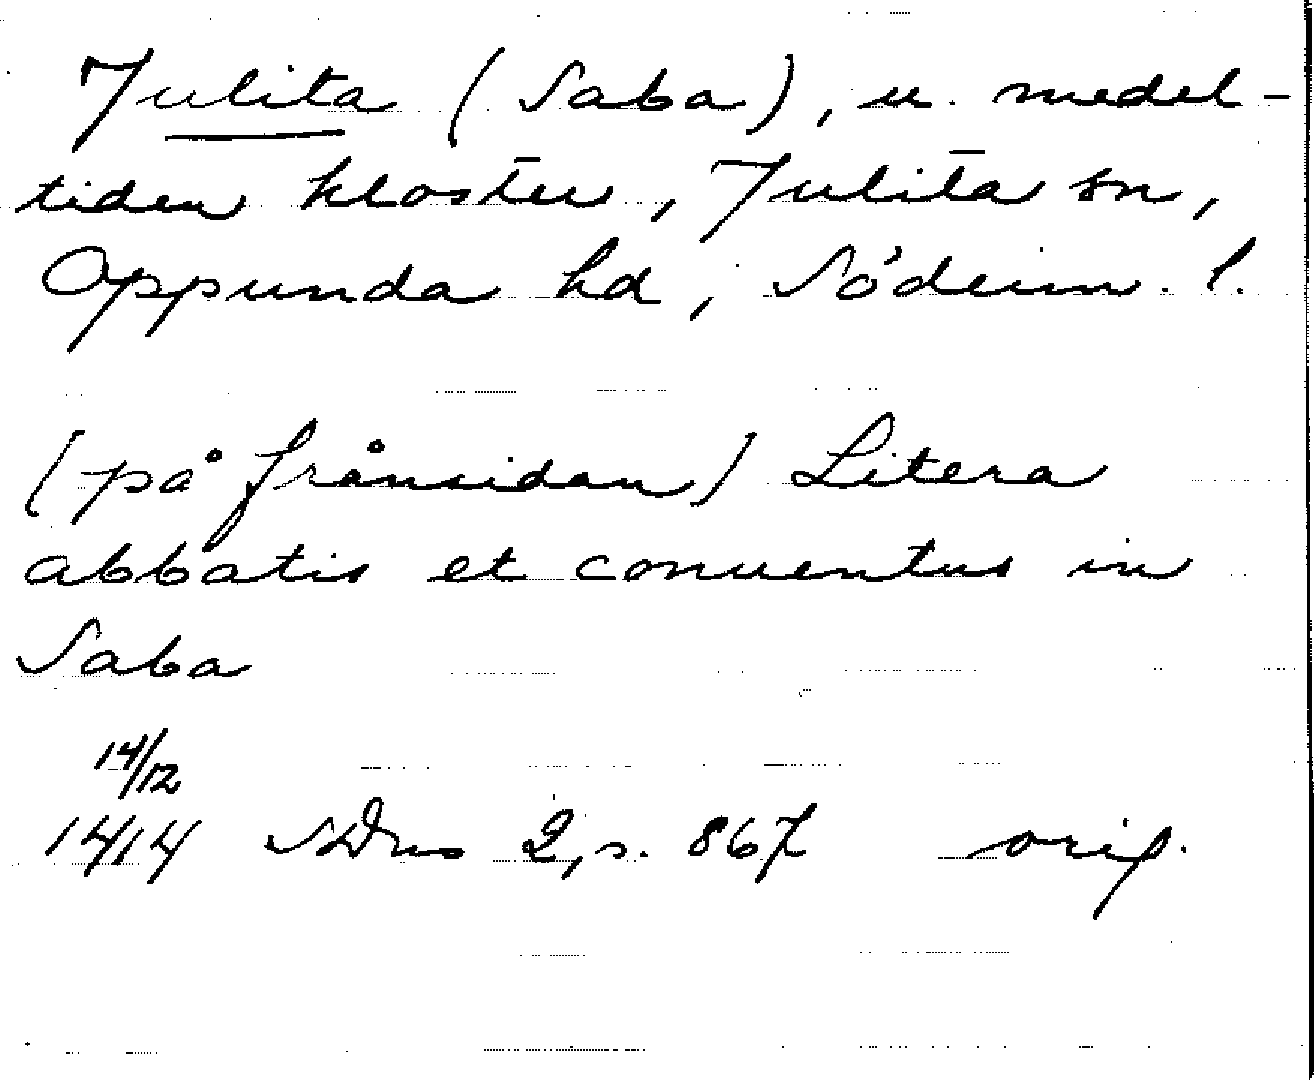 Julita (Saba), u. medel-
tiden kloster, Julita sn,
Oppunda hd, Söderm. l.
(på frånsidan) Litera
abbatis et conuentus in
Saba
14/12
1414 SDns 2, s. 867 orig.